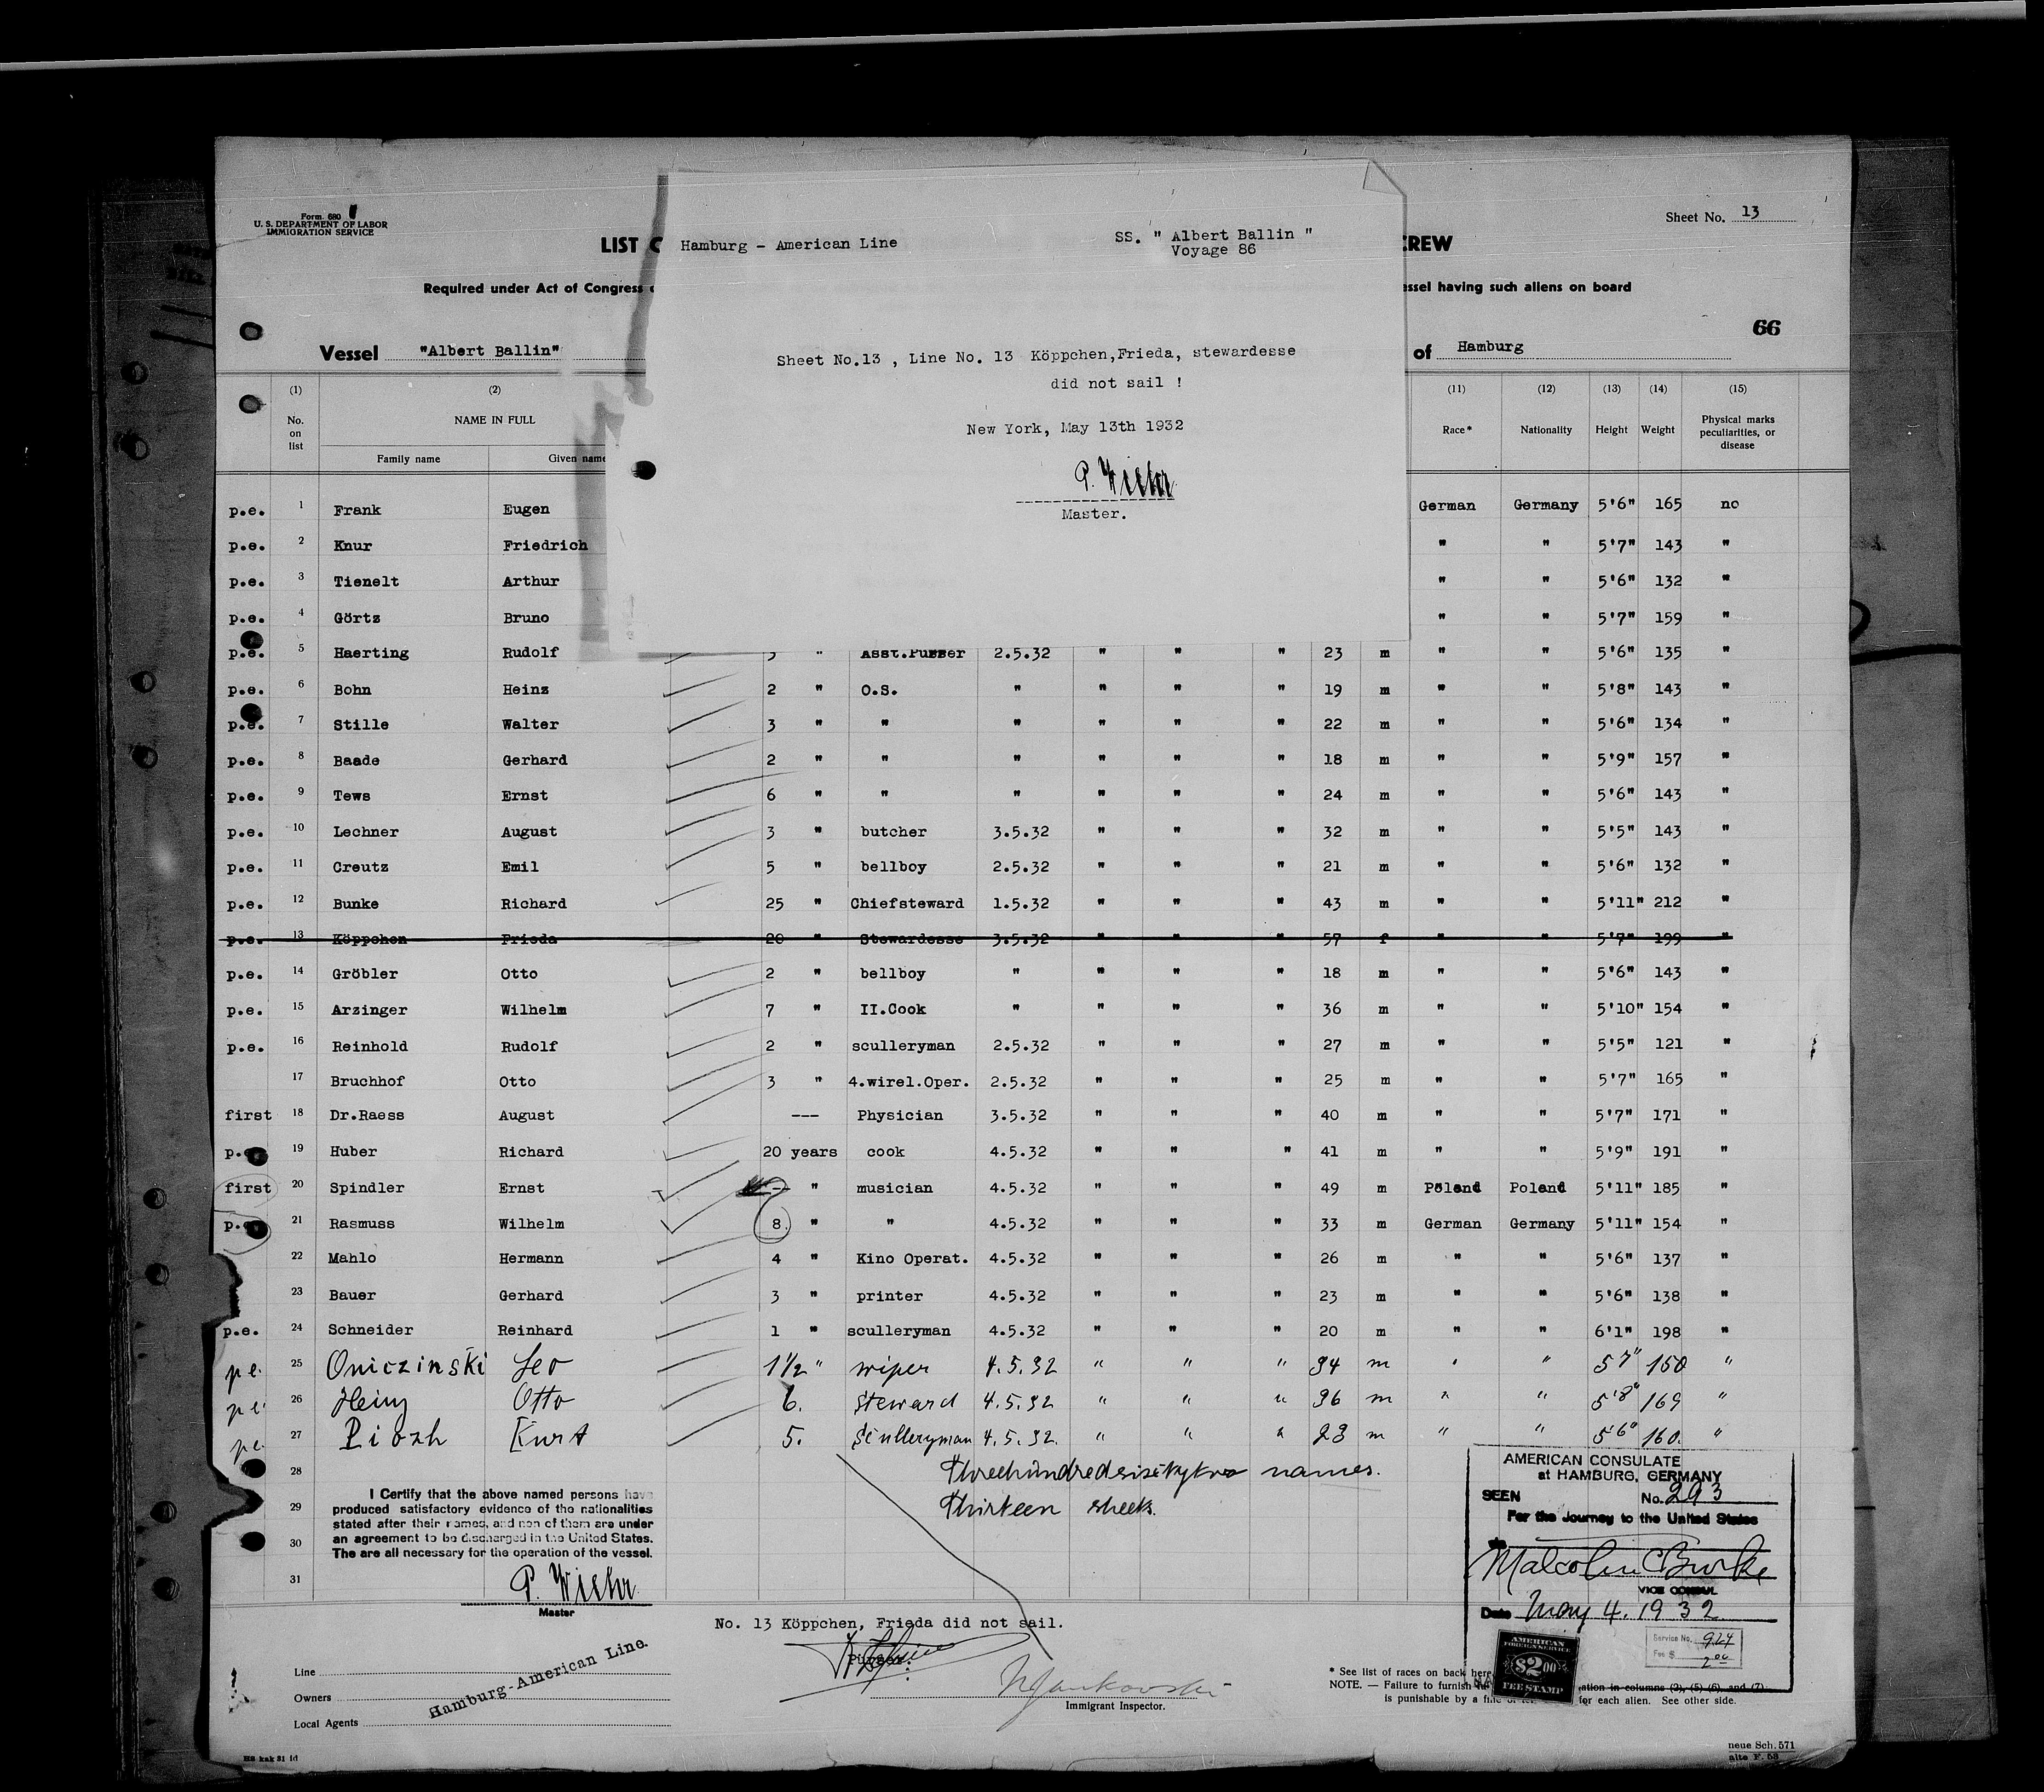 Form. 680
U. S. DEPARTMENT OF LABOR
IMMIGRATION SERVICE
Sheet No. 13
LIST
CREW
Hamburg - American Line
SS. " Albert Ballin "
Voyage 86
Required under Act of Congress
having such aliens on board
66
Sheet No.13 , Line No. 13 Köppchen,Frieda, stewardesse
did not sail !
New York, May 13th 1932
P. Wiehr
Master.
Vessel "Albert Ballin"
of Hamburg
(1) (2) (11) (12) (13) (14) (15)
No. on list NAME IN FULL Race* Nationality Height Weight Physical marks peculiarities, or disease
Family name Given name
p.e. 1 Frank Eugen German Germany 5'6" 165 no
p.e. 2 Knur Friedrich " " 5'7" 143 "
p.e. 3 Tienelt Arthur " " 5'6" 132 "
p.e. 4 Görtz Bruno " " 5'7" 159 "
p.e. 5 Haerting Rudolf 3 " Asst.Purser 2.5.32 " " " 23 m " " 5'6" 135 "
p.e. 6 Bohn Heinz 2 " O.S. " " " " 19 m " " 5'8" 143 "
p.e. 7 Stille Walter 3 " " " " " " 22 m " " 5'6" 134 "
p.e. 8 Baade Gerhard 2 " " " " " " 18 m " " 5'9" 157 "
p.e. 9 Tews Ernst 6 " " " " " " 24 m " " 5'6" 143 "
p.e. 10 Lechner August 3 " butcher 3.5.32 " " " 32 m " " 5'5" 143 "
p.e. 11 Creutz Emil 5 " bellboy 2.5.32 " " " 21 m " " 5'6" 132 "
p.e. 12 Bunke Richard 25 " Chiefsteward 1.5.32 " " " 43 m " " 5'11" 212 "
p.e. 13 Köppchen Frieda 20 " Stewardesse 3.5.32 " " " 57 f " " 5'7" 199 "
p.e. 14 Gröbler Otto 2 " bellboy " " " " 18 m " " 5'6" 143 "
p.e. 15 Arzinger Wilhelm 7 " II.Cook " " " " 36 m " " 5'10" 154 "
p.e. 16 Reinhold Rudolf 2 " sculleryman 2.5.32 " " " 27 m " " 5'5" 121 "
17 Bruchhof Otto 3 " 4.wirel.Oper. 2.5.32 " " " 25 m " " 5'7" 165 "
first 18 Dr.Raess August --- Physician 3.5.32 " " " 40 m " " 5'7" 171 "
p. 19 Huber Richard 20 years cook 4.5.32 " " " 41 m " " 5'9" 191 "
first 20 Spindler Ernst - " musician 4.5.32 " " " 49 m Poland Poland 5'11" 185 "
p. 21 Rasmuss Wilhelm 8 " " 4.5.32 " " " 33 m German Germany 5'11" 154 "
22 Mahlo Hermann 4 " Kino Operat. 4.5.32 " " " 26 m " " 5'6" 137 "
23 Bauer Gerhard 3 " printer 4.5.32 " " " 23 m " " 5'6" 138 "
p.e. 24 Schneider Reinhard 1 " sculleryman 4.5.32 " " " 20 m " " 6'1" 198 "
pe. 25 Oniczinski Leo 1½ " wiper 4.5.32 " " " 34 m " " 5'7" 150 "
pe. 26 Heinz Otto 6. Steward 4.5.32 " " " 36 m " " 5'8" 169 "
pe. 27 Kurt 5. Sculleryman 4.5.32. " " " 23 m " " 5'6" 160. "
28 names.
29 Thirteen sheets.
30
31
I Certify that the above named persons have
produced satisfactory evidence of the nationalities
stated after their names, and non of them are under
an agreement to be discharged in the United States.
The are all necessary for the operation of the vessel.
P. Wiehr
Master
AMERICAN CONSULATE
at HAMBURG, GERMANY
SEEN No. 293
For the Journey to the United States
Malcolm C Burke
VICE CONSUL
Date May 4. 1932
Service No. 924
Fee $ 2.00
AMERICAN
FOREIGN SERVICE
$2.00
FEE STAMP
No. 13 Köppchen, Frieda did not sail.
Purser.
Line
Owners
Local Agents
Hamburg-American Line.
Immigrant Inspector.
* See list of races on back
NOTE. — Failure to furnish in columns (2), (5) (6), and (7)
is punishable by a for each alien. See other side.
neue Sch. 571
alte F. 53